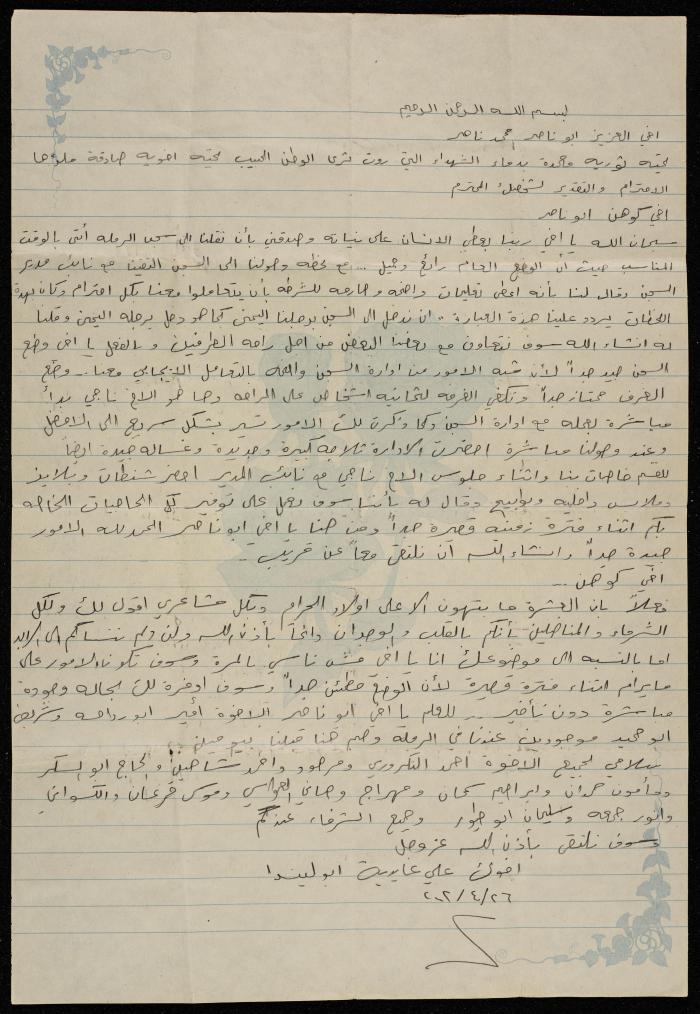 بسم الله الرحمن الرحيم
اخي العزيز ابو ناصر محمد ناصر
تحية ثورية معمدة بدماء الشهداء التي روت ثرى الوطن الحبيب تحية اخويه صادقة ملؤها
الاحترام والتقدير لشخصك المحترم
اخي كوهن ابو ناصر
سبحان الله يا اخي ربنا يعطي الانسان على نياته وصدقني بأن نقلنا الى سجن الرمله أتى بالوقت
المناسب حيث أن الوضع العام رائع وجميل ... مع لحظه وصولنا الى السجن التقينا مع نائب مدير
السجن وقال لنا بأنه اعطى تعليمات واضحه وصارمه للشرطه بأن يتعاملوا معنا بكل احترام وكان بهذة
اللحظات يردد علينا هذة العبارة .. ان ندخل الى السجن برجلنا اليمنى كما هو دخل برجله اليمنى وقلنا
له انشاء الله سوف نتعاون مع بعضنا البعض من اجل راحه الطرفين وبالفعل يا اخي وضع
السجن جيد جداً لأن هذه الامور من ادارة السجن والعمل بالتعامل الايجابي معنا .. وضع
الغرف ممتاز جداً وتكفي الغرفه لثمانية اشخاص على الراحه وها هو الاخ ناجي بدأ
مباشرة لعمله مع ادارة السجن وكما ذكرت لك الامور تسير بشكل سريع الى الافضل
وعند وصولنا مباشرة احضرت الادارة ثلاجه كبيرة وجديدة وغساله جيدة ايضاً
للقسم خاصات بنا واثناء جلوس الاخ ناجي مع نائب المدير احضر شنطات وبلايز
وملابس داخليه وبوابيج وقال له بأننا سوف نعمل على توفير كل الحاجيات الخاصه
بكم اثناء فترة زمنيه قصيرة جداً ومن هنا يا اخي ابو ناصر الحمد لله الامور
جيدة جداً وانشاء الله أن نلتقي معاً عن قريب ..
اخي كوهن ...
فعلاً بان العشرة ما بتهون الا على اولاد الحرام وبكل مشاعري اقول لك ولكل
الشرفاء والمناضلين بأنكم بالقلب والوجدان دائماً بأذن الله ولن ولم ننساكم الى الابد
اما بالنسبه الى موضوعك انا يا اخي مش ناسي بالمرة وسوف تكون الامور على
ما يرام اثناء فترة قصيرة لأن الوضع مطمئن جداً وسوف اوفرة لك بحاله وجودة
مباشرة دون تأخير .. للعلم يا اخي ابو ناصر الاخوة أمير ابو رداحه وشريف
ابو حميد موجودين عندنا في الرملة وهم هنا قبلنا
سلامي لجميع الاخوة احمد التكروري وفرهود واحمد شاهين والحاج ابو السكر
ومأمون حمدان وابراهيم سمحان ومهراج وهاني العواسي وموسى قرعان والكسواني
وانور جمعه وسليمان ابو طيور وجميع الشرفاء عندكم
وسوف نلتقي بأذن الله عز وجل
اخوك علي ابو ليندا
٢٠٠٢/٤/٢٦